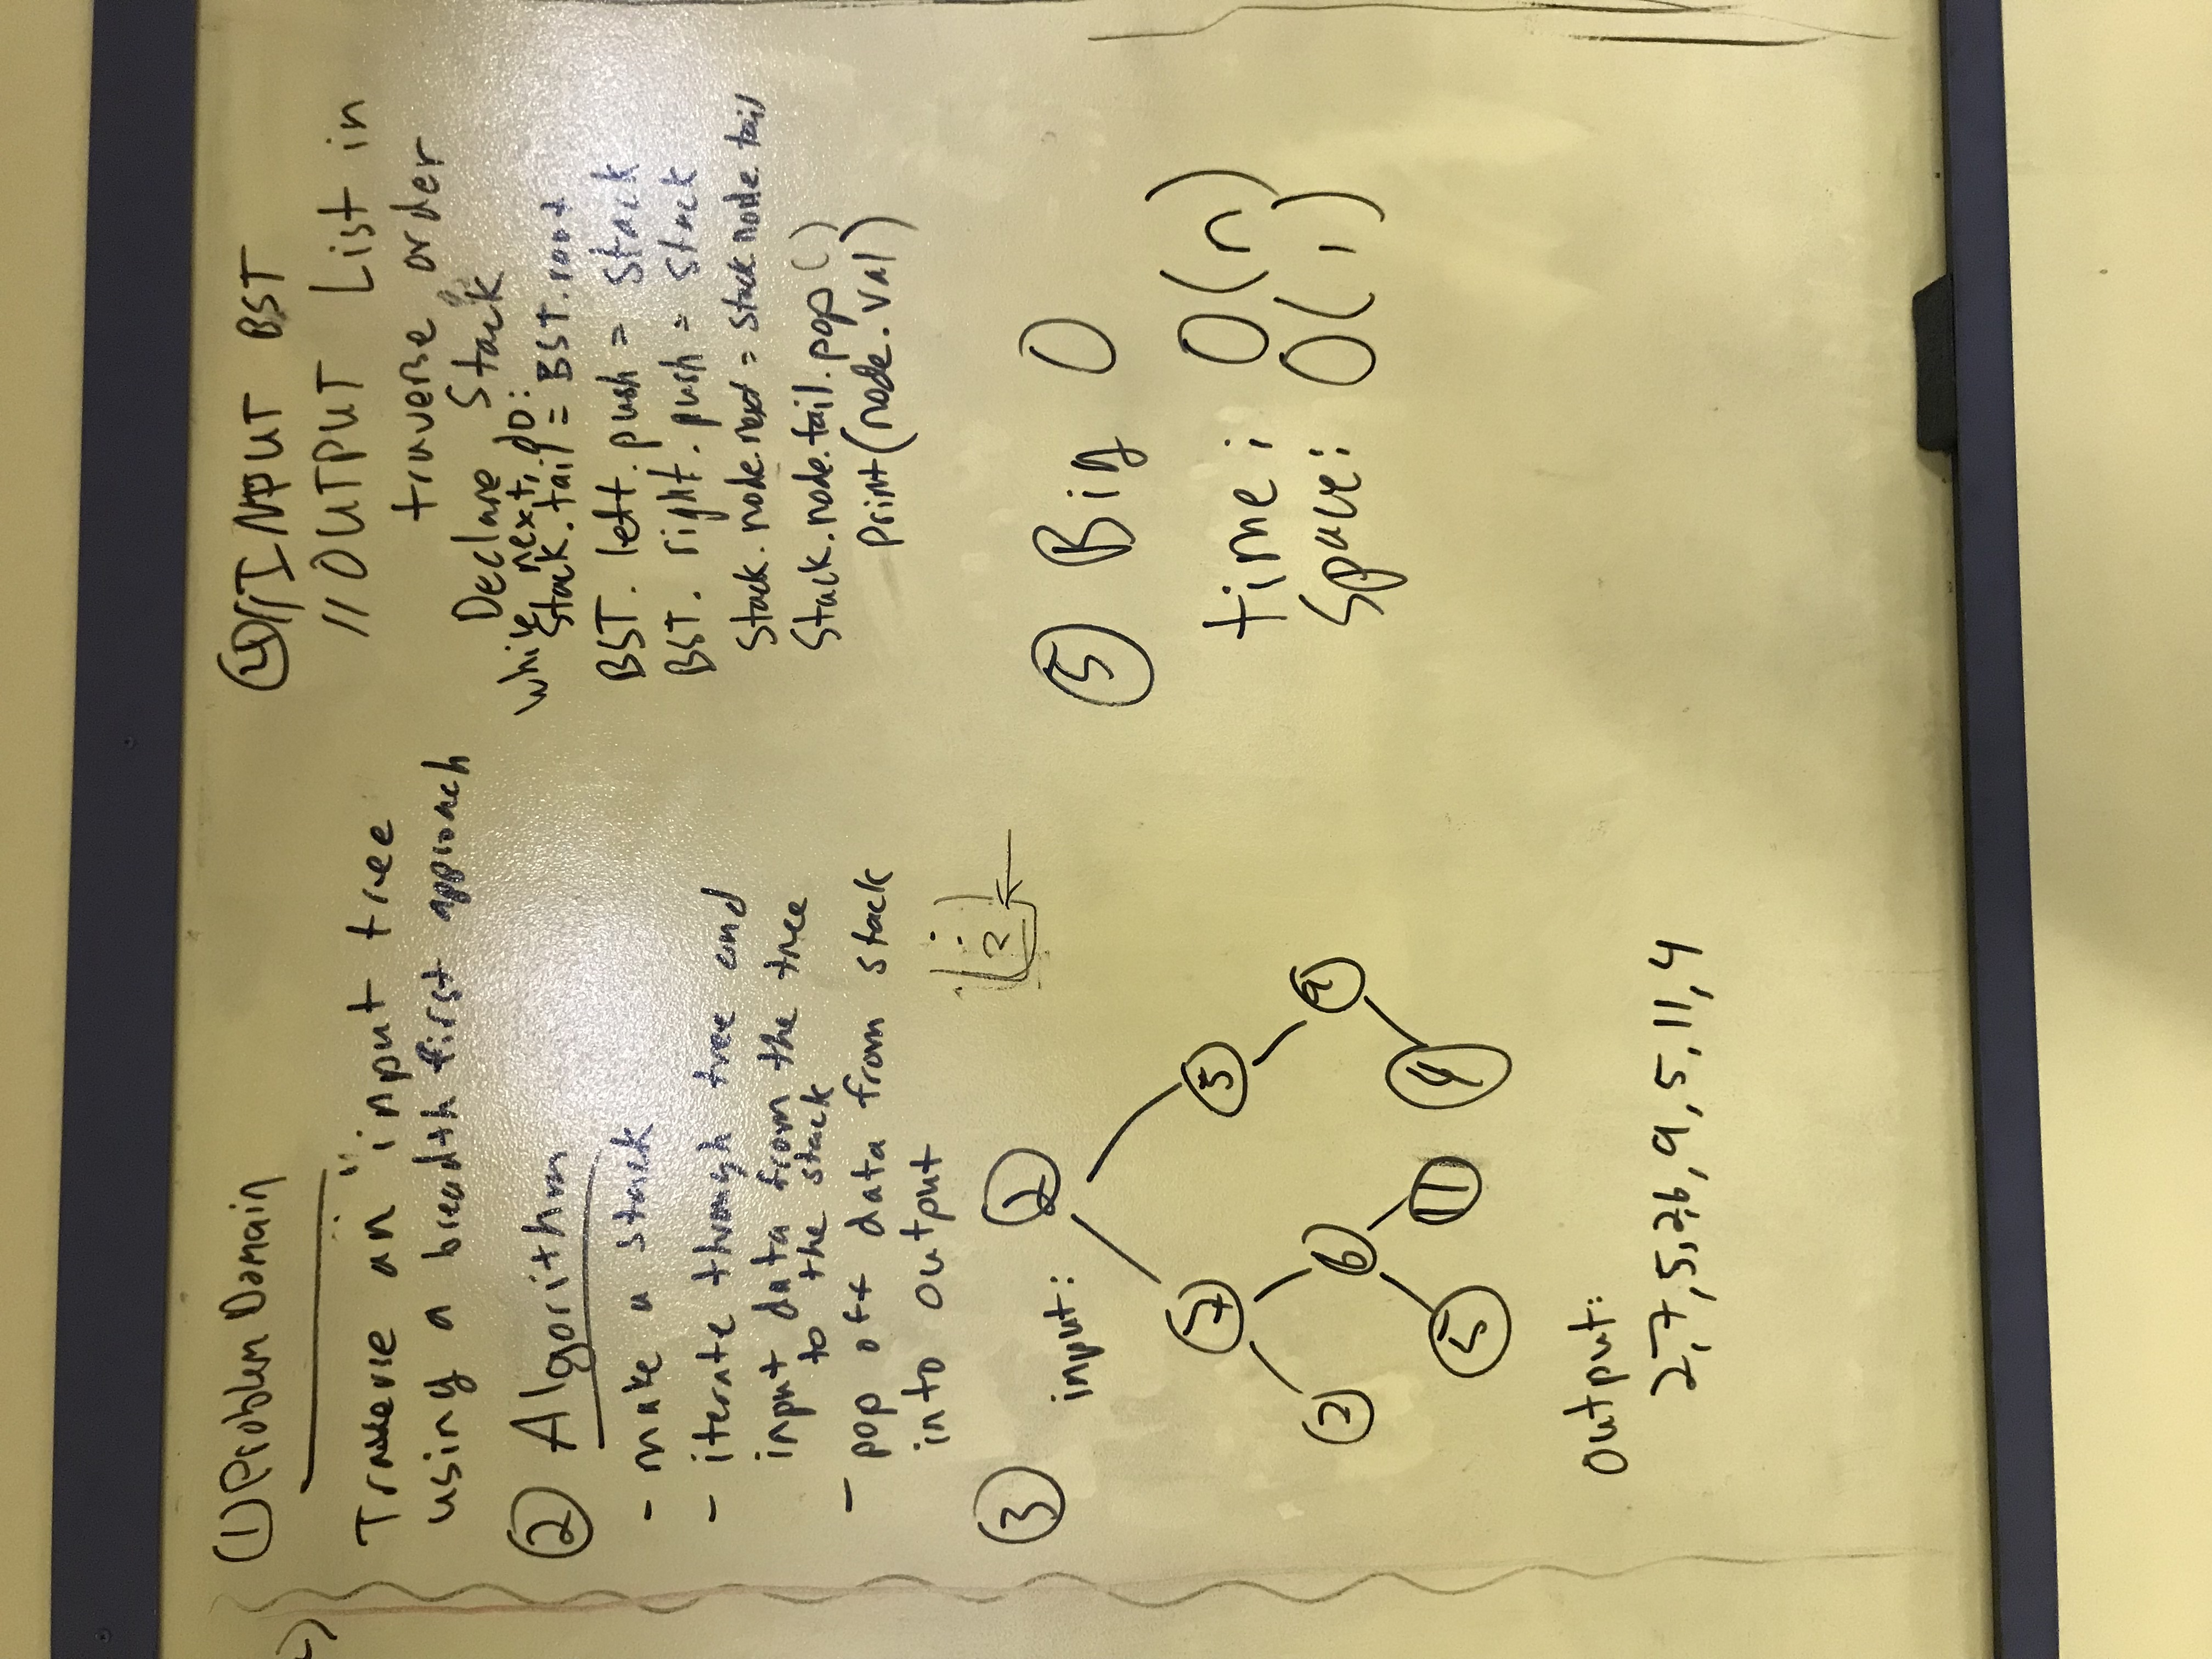 ① Problem Domain
Traverse an input tree
using a breadth first approach
② Algorithm
- make a stack
- iterate through tree and
input data from the tree
to the stack
- pop off data from stack
into output
③
input:
2
7 5
2 6 9
5 11 4
2
Output:
2,7,5,2,6,9,5,11,4
④ //INPUT BST
//OUTPUT List in
traverse order
Declare Stack
while next, do:
Stack.tail = BST.root
BST.left.push = Stack
BST.right.push = Stack
Stack.node.next = Stack.node.tail
Stack.node.tail.pop()
Print(node.val)
⑤ Big O
time: O(n)
Space: O(1)